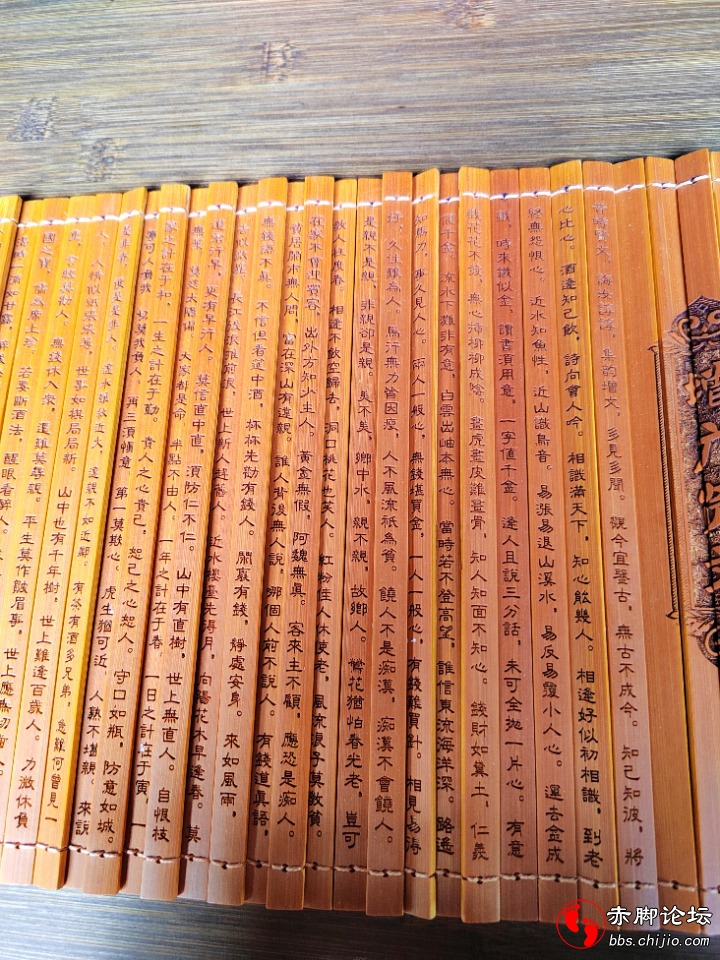 增廣賢
昔時賢文，誨汝諄諄，集韵增文，多見多聞。觀今宜鑒古，無古不成今。知己知彼，將
心比心。酒逢知己飲，詩向會人吟。相識滿天下，知心能幾人。相逢好似初相識，到老
終無怨恨心。近水知魚性，近山識鳥音。易漲易退山溪水，易反易覆小人心。運去金成
鐵，時來鐵似金，讀書須用意，一字值千金。逢人且說三分話，未可全拋一片心。有意
栽花花不發，無心插柳柳成蔭。畫虎畫皮難畫骨，知人知面不知心。錢財如糞土，仁義
值千金。流水下灘非有意，白雲出岫本無心。當時若不登高望，誰信東流海洋深。路遙
知馬力，事久見人心。兩人一般心，無錢堪買金，一人一般心，有錢難買針。相見易得
好，久住難為人。馬行無力皆因瘦，人不風流祇為貧。饒人不是癡漢，癡漢不會饒人。
是親不是親，非親卻是親。美不美，鄉中水，親不親，故鄉人。鶯花猶怕春光老，豈可
教人枉度春。相逢不飲空歸去，洞口桃花也笑人。紅粉佳人休使老，風流浪子莫教貧。
在家不會迎賓客，出外方知少主人。黃金無假，阿魏無真。客來主不顧，應恐是癡人。
貧居鬧市無人問，富在深山有遠親。誰人背後無人說，哪個人前不說人。有錢道真語，
無錢語不真。不信但看筵中酒，杯杯先勸有錢人。鬧裏有錢，靜處安身。來如風雨，
去似微塵。長江後浪推前浪，世上新人趕舊人。近水樓臺先得月，向陽花木早逢春。莫
道君行早，更有早行人。莫信直中直，須防仁不仁。山中有直樹，世上無直人。自恨枝
無葉，莫怨太陽偏。大家都是命，半點不由人。一年之計在于春，一日之計在于寅，一
家之計在于和，一生之計在于勤。責人之心責己，恕己之心恕人。守口如瓶，防意如城。
寧可人負我，切莫我負人。再三須慎意，第一莫欺心。虎生猶可近，人熟不堪親。來說
是非者，便是是非人。遠水難救近火，遠親不如近鄰。有茶有酒多兄弟，急難何曾見一
人。人情似紙張張薄，世事如棋局局新。山中也有千年樹，世上難逢百歲人。力微休負
重，言輕莫勸人。無錢休入眾，遭難莫尋親。平生莫作皺眉事，世上應無切齒人。
國之寶，儒為席上珍。若要斷酒法，醒眼看醉人。
渴時一滴如甘露，醉
赤脚论坛
bbs.chijio.com